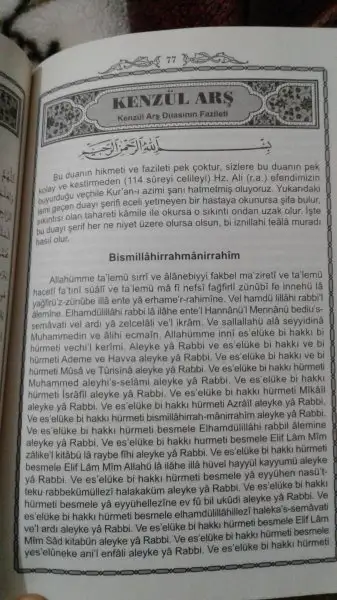 77
KENZÜL ARŞ
Kenzül Arş Duasının Fazileti
Bu duanın hikmeti ve fazileti pek çoktur, sizlere bu duanın pek
kolay ve kestirmeden (114 sûreyi celileyi) Hz. Ali (r.a.) efendimizin
buyurduğu veçhile Kur'an-ı azimi şanı hatmetmiş oluyoruz. Yukarıdaki
ismi geçen duayı şerifi eceli yetmeyen bir hastaya okunursa şifa bulur,
sıkıntısı olan tahareti kâmile ile okursa o sıkıntı ondan uzak olur. İşte
bu duayı şerif her ne niyet üzere olursa olsun, bi iznillahi teâlâ muradı
hasıl olur.
Bismillâhirrahmânirrahîm
Allahümme ta'lemü sırrî ve âlânebiyyi fakbel ma'ziretî ve ta'lemü
hacetî fa'tinî süâlî ve ta'lemü mâ fî nefsî fağfirlî zünûbî fe innehü lâ
yağfirü'z-zünûbe illâ ente yâ erhame'r-rahimîne. Vel hamdü lillâhi rabbi'l
âlemîne. Elhamdülillâhi rabbî lâ ilâhe ente'l Hannânü'l Mennânü bediu's-
semâvati vel ardı yâ zelcelâli ve'l ikrâm. Ve sallallahü alâ seyyidinâ
Muhammedin ve âlihi ecmaîn. Allahümme innî es'elüke bi hakkı bi
hürmeti vechi'l kerîmi. Aleyke yâ Rabbi ve es'elüke bi hakkı ve bi
hürmeti Ademe ve Havva aleyke yâ Rabbi. Ve es'elüke bi hakkı ve bi
hürmeti Mûsâ ve Tûrisînâ aleyke yâ Rabbi. Ve es'elüke bi hakkı hürmeti
Muhammed aleyhi's-selâmi aleyke yâ Rabbi. Ve es'elüke bi hakkı
hürmeti İsrâfîl aleyke yâ Rabbi. Ve es'elüke bi hakkı hürmeti Mîkâîl
aleyke yâ Rabbi. Ve es'elüke bi hakkı hürmeti Azrâîl aleyke yâ Rabbi.
Ve es'elüke bi hakkı hürmeti bismillâhirrah-mânirrahîm aleyke yâ Rabbi.
Ve es'elüke bi hakkı hürmeti besmele Elhamdülillâhi rabbil âlemine
aleyke yâ Rabbi. Ve es'elüke bi hakkı hurmeti besmele Elif Lâm Mîm
zâlike'l kitâbü lâ raybe fîhi aleyke yâ Rabbi. Ve es'elüke bi hakkı hürmeti
besmele Elif Lâm Mîm Allahü lâ ilâhe illâ hüvel hayyül kayyumü aleyke
yâ Rabbi. Ve es'elüke bi hakkı hürmeti besmele yâ eyyühen nasü't-
teku rabbekümüllezî halakaküm aleyke yâ Rabbi. Ve es'elüke bi hakkı
hürmeti besmele yâ eyyühellezîne ev fû bil ukûdi aleyke yâ Rabbi. Ve
es'elüke bi hakkı hürmeti besmele elhamdülillâhillezî haleka's-semâvati
ve'l ardı aleyke yâ Rabbi. Ve es'elüke bi hakkı hürmeti besmele Elif Lâm
Mîm Sâd kitabün aleyke yâ Rabbi. Ve es'elüke bi hakkı hürmeti besmele
yes'elûneke ani'l enfâli aleyke yâ Rabbi. Ve es'elüke bi hakkı hürmeti